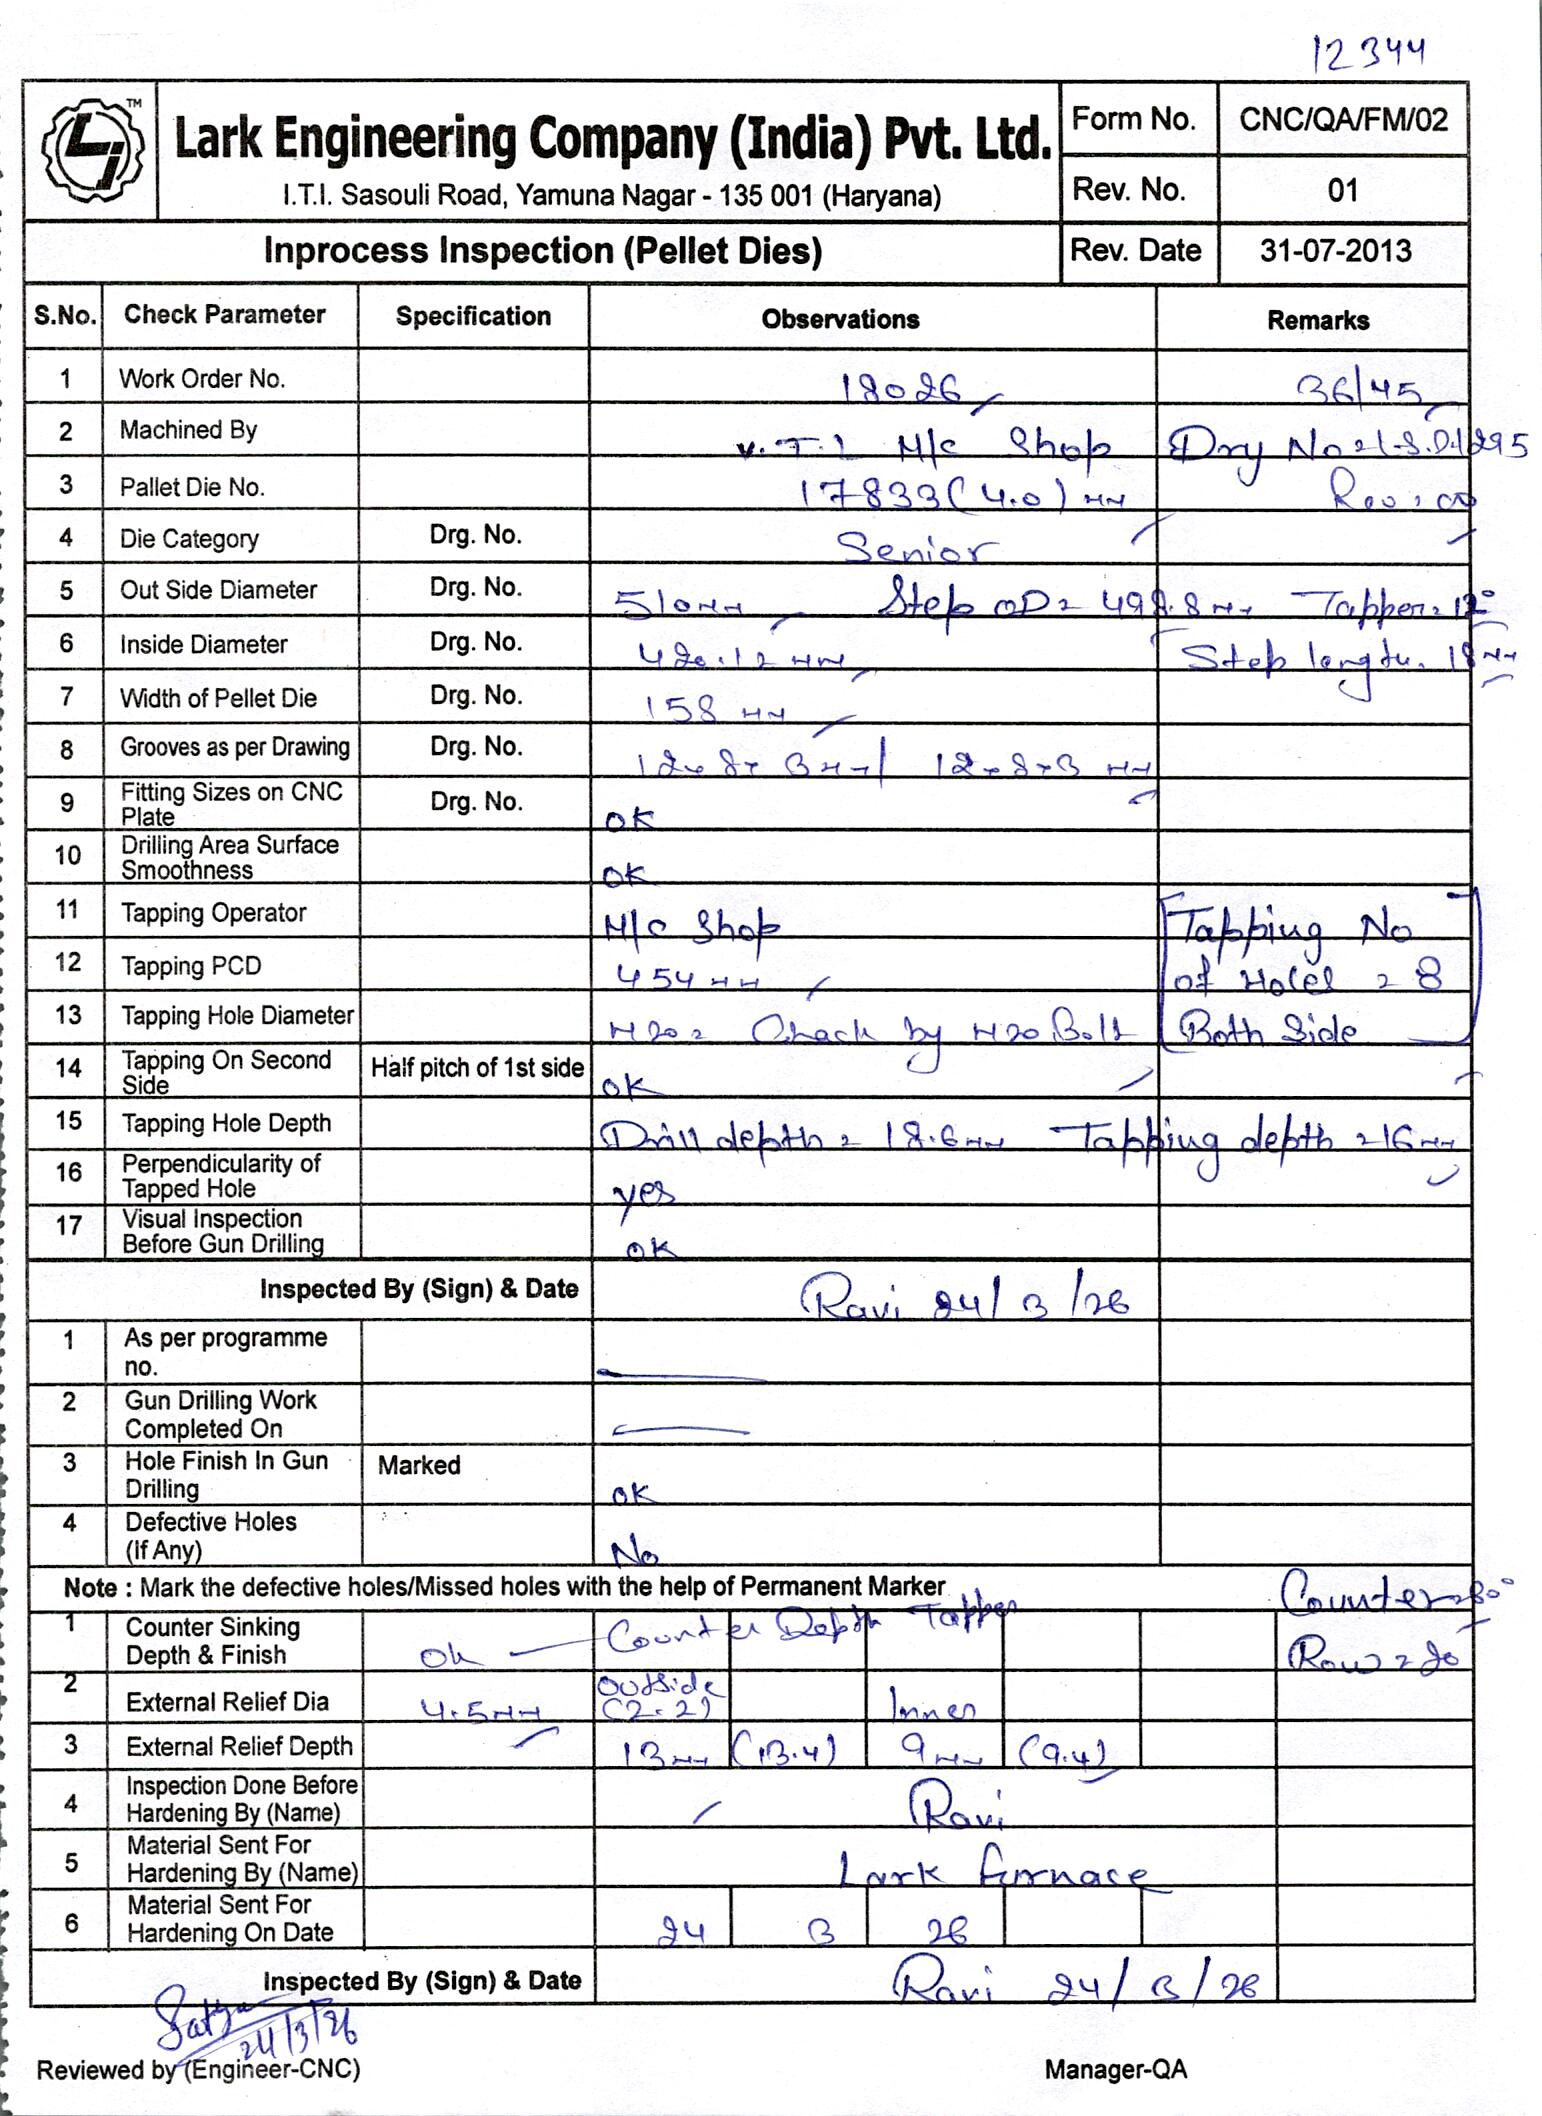 12344
TM
Lark Engineering Company (India) Pvt. Ltd.
I.T.I. Sasouli Road, Yamuna Nagar - 135 001 (Haryana)
Form No. CNC/QA/FM/02
Rev. No. 01
Inprocess Inspection (Pellet Dies) Rev. Date 31-07-2013
S.No. Check Parameter Specification Observations Remarks
1 Work Order No. 18026 36/45
2 Machined By V.T.L M/c Shop Drg No
3 Pallet Die No. 17833 (4.0) mm Rev: 00
4 Die Category Drg. No. Senior
5 Out Side Diameter Drg. No. 510mm Step OD= 498.8mm Tapper= 12°
6 Inside Diameter Drg. No. 420.12 mm Step length= 18mm
7 Width of Pellet Die Drg. No. 158 mm
8 Grooves as per Drawing Drg. No. 12x8x3mm/ 12x8x3 mm
9 Fitting Sizes on CNC Plate Drg. No. ok
10 Drilling Area Surface Smoothness ok
11 Tapping Operator M/c Shop Tapping No
12 Tapping PCD 454mm of Holes = 8
13 Tapping Hole Diameter M20= Check by M20 Bolt Both Side
14 Tapping On Second Side Half pitch of 1st side ok
15 Tapping Hole Depth Drill depth= 18.6mm Tapping depth=16mm
16 Perpendicularity of Tapped Hole yes
17 Visual Inspection Before Gun Drilling ok
Inspected By (Sign) & Date Ravi 24/3/26
1 As per programme no.
2 Gun Drilling Work Completed On
3 Hole Finish In Gun Drilling Marked ok
4 Defective Holes (If Any) No
Note : Mark the defective holes/Missed holes with the help of Permanent Marker
1 Counter Sinking Depth & Finish ok Counter Depth Tapper Counter Row = 20
2 External Relief Dia 4.5mm Outside (2.2) Inner
3 External Relief Depth 13mm (13.4) 9mm (9.4)
4 Inspection Done Before Hardening By (Name) Ravi
5 Material Sent For Hardening By (Name) Lark furnace
6 Material Sent For Hardening On Date 24 3 26
Inspected By (Sign) & Date Ravi 24/3/26
Satya
24/3/26
Reviewed by (Engineer-CNC) Manager-QA